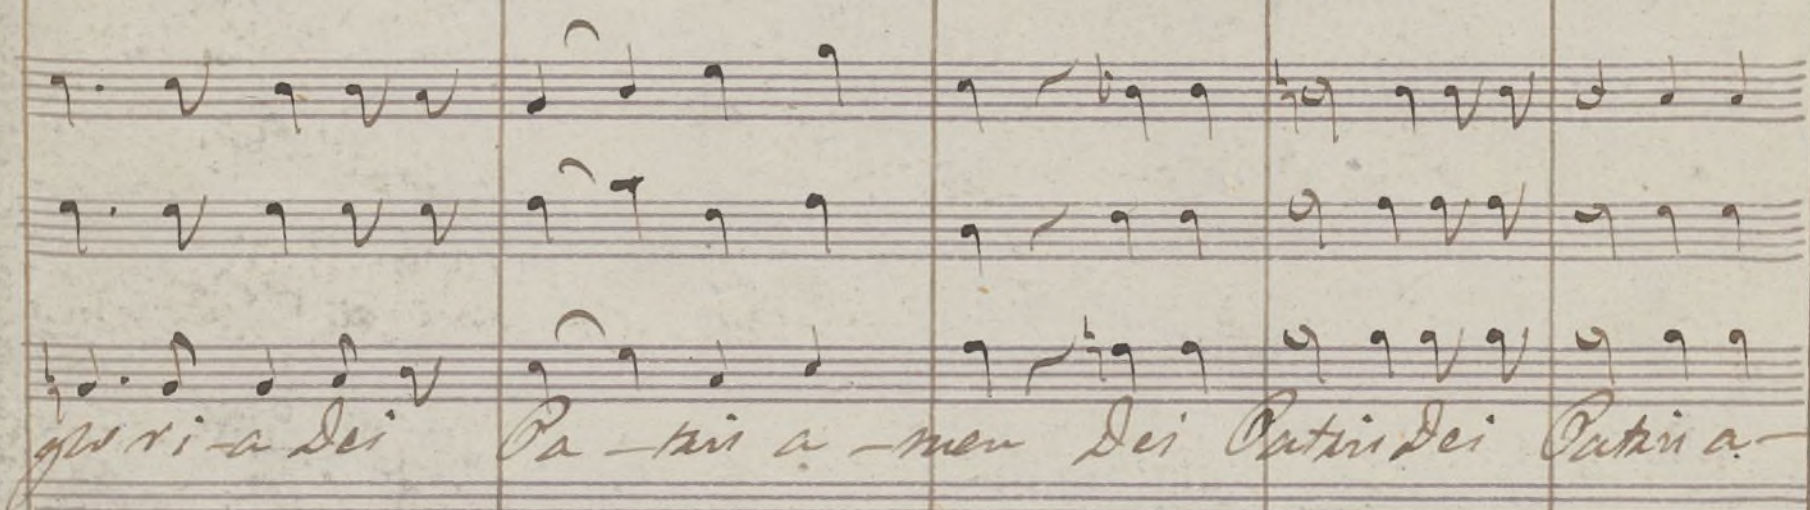 glo ri-a Dei Pa-tris a-men Dei Patris Dei Patris a-